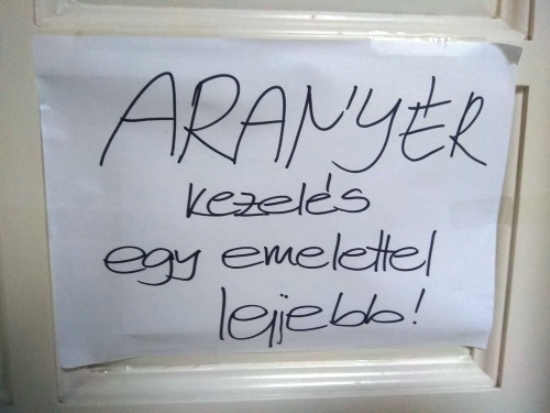 ARANYÉR
kezelés
egy emelettel
lejjebb!